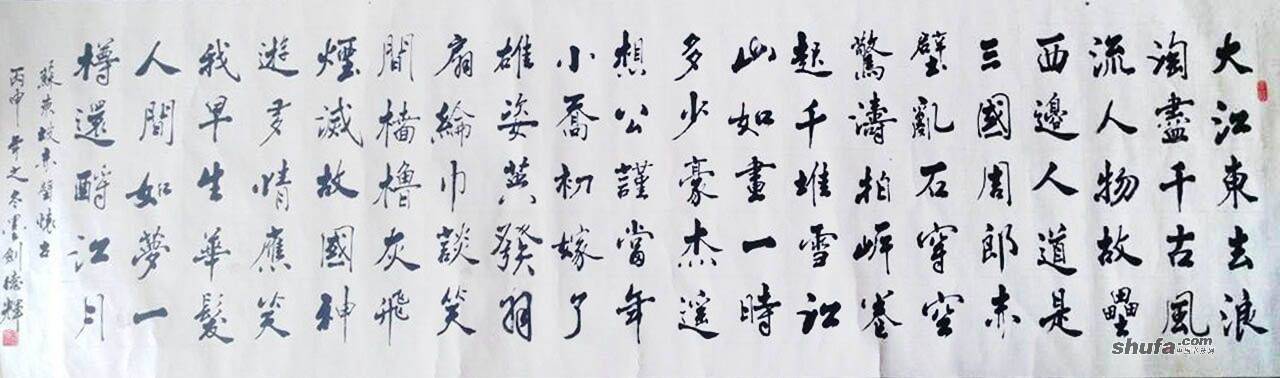 大江東去浪
淘盡千古風
流人物故壘
西邊人道是
三國周郎赤
壁亂石穿空
驚濤拍岸卷
起千堆雪江
山如畫一時
多少豪杰遥
想公謹當年
小喬初嫁了
雄姿英發羽
扇綸巾談笑
間檣櫓灰飛
煙滅故國神
遊多情應笑
我早生華髮
人間如夢一
樽還酹江月
蘇東坡赤壁懷古
丙申年之冬劉德輝
shufa.com